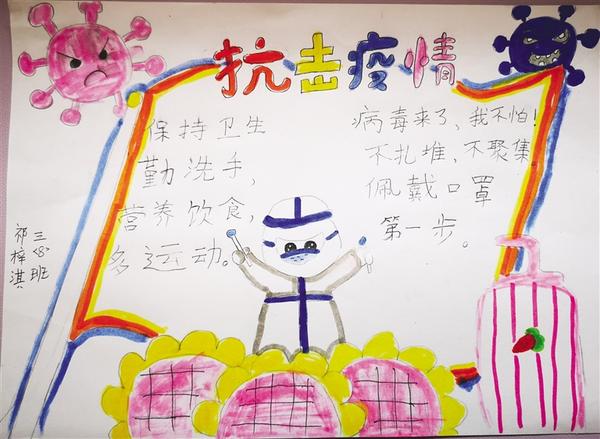 抗击疫情
保持卫生
勤洗手，
营养饮食，
多运动。
病毒来了，我不怕！
不扎堆，不聚集
佩戴口罩
第一步。
三<8>班
祁梓淇